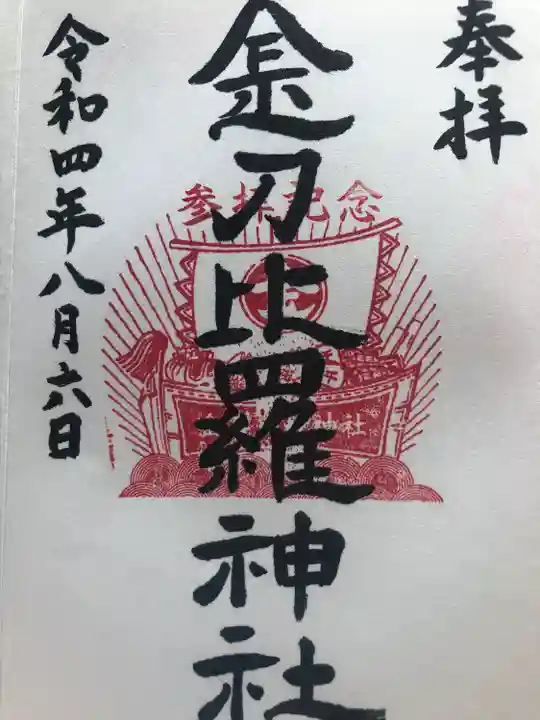 奉拝
参拝記念
金刀比羅神社
令和四年八月六日